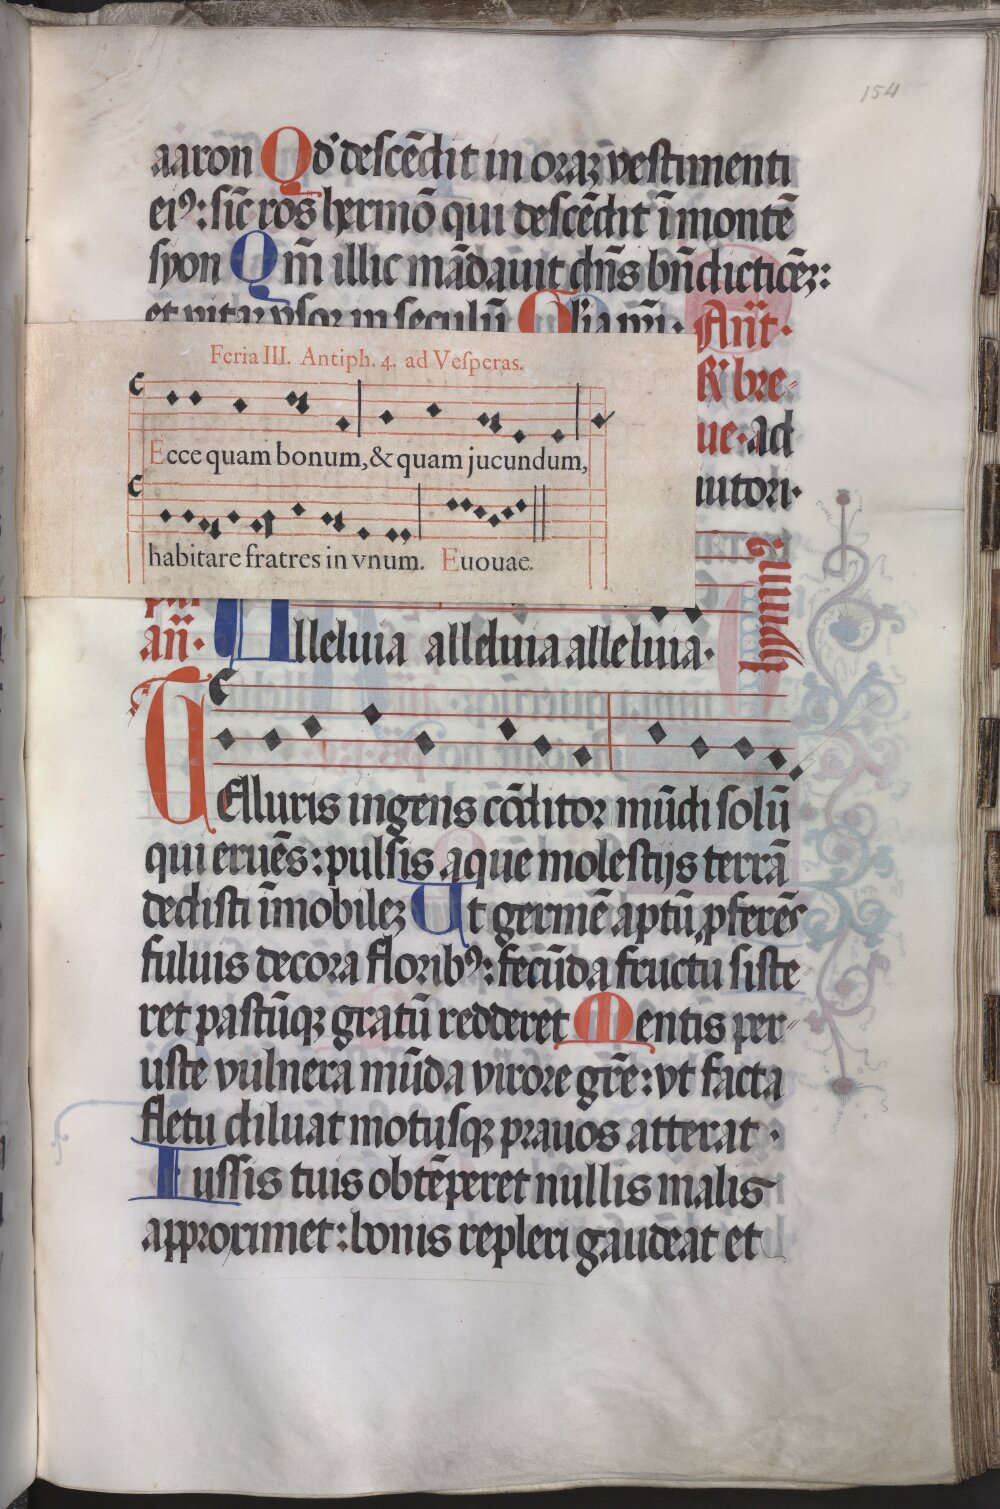 154
aaron Qd' descēdit in oraꝫ vestimenti
eiꝰ: sic̄ ros hermō qui descēdit ī montē
syon Qm̄ illic mādauit dn̄s bn̄dicticēꝫ:
et vitaꝫ vsqꝫ in seculū Gl'ia pr̄i. Añt.
Feria III. Antiph. 4. ad Veſperas.
R' bre-
Ecce quam bonum, & quam jucundum,
ue. ad
iutori.
habitare fratres in vnum. Euouae.
hymnꝰ
an̄. Alleluia alleluia alleluia.
Telluris ingens cōditor mūdi solū
qui eruēs: pulsis aque molestijs terrā
dedisti īmobileꝫ Ut germē aptū ꝓferēs
fuluis decora floribꝰ: fecūda fructu siste
ret pastūqꝫ gratū redderet Mentis per-
uste vulnera mūda virore grē: vt facta
fletu diluat motusqꝫ prauos atterat.
Iussis tuis obtēperet nullis malis
approximet: bonis repleri gaudeat et